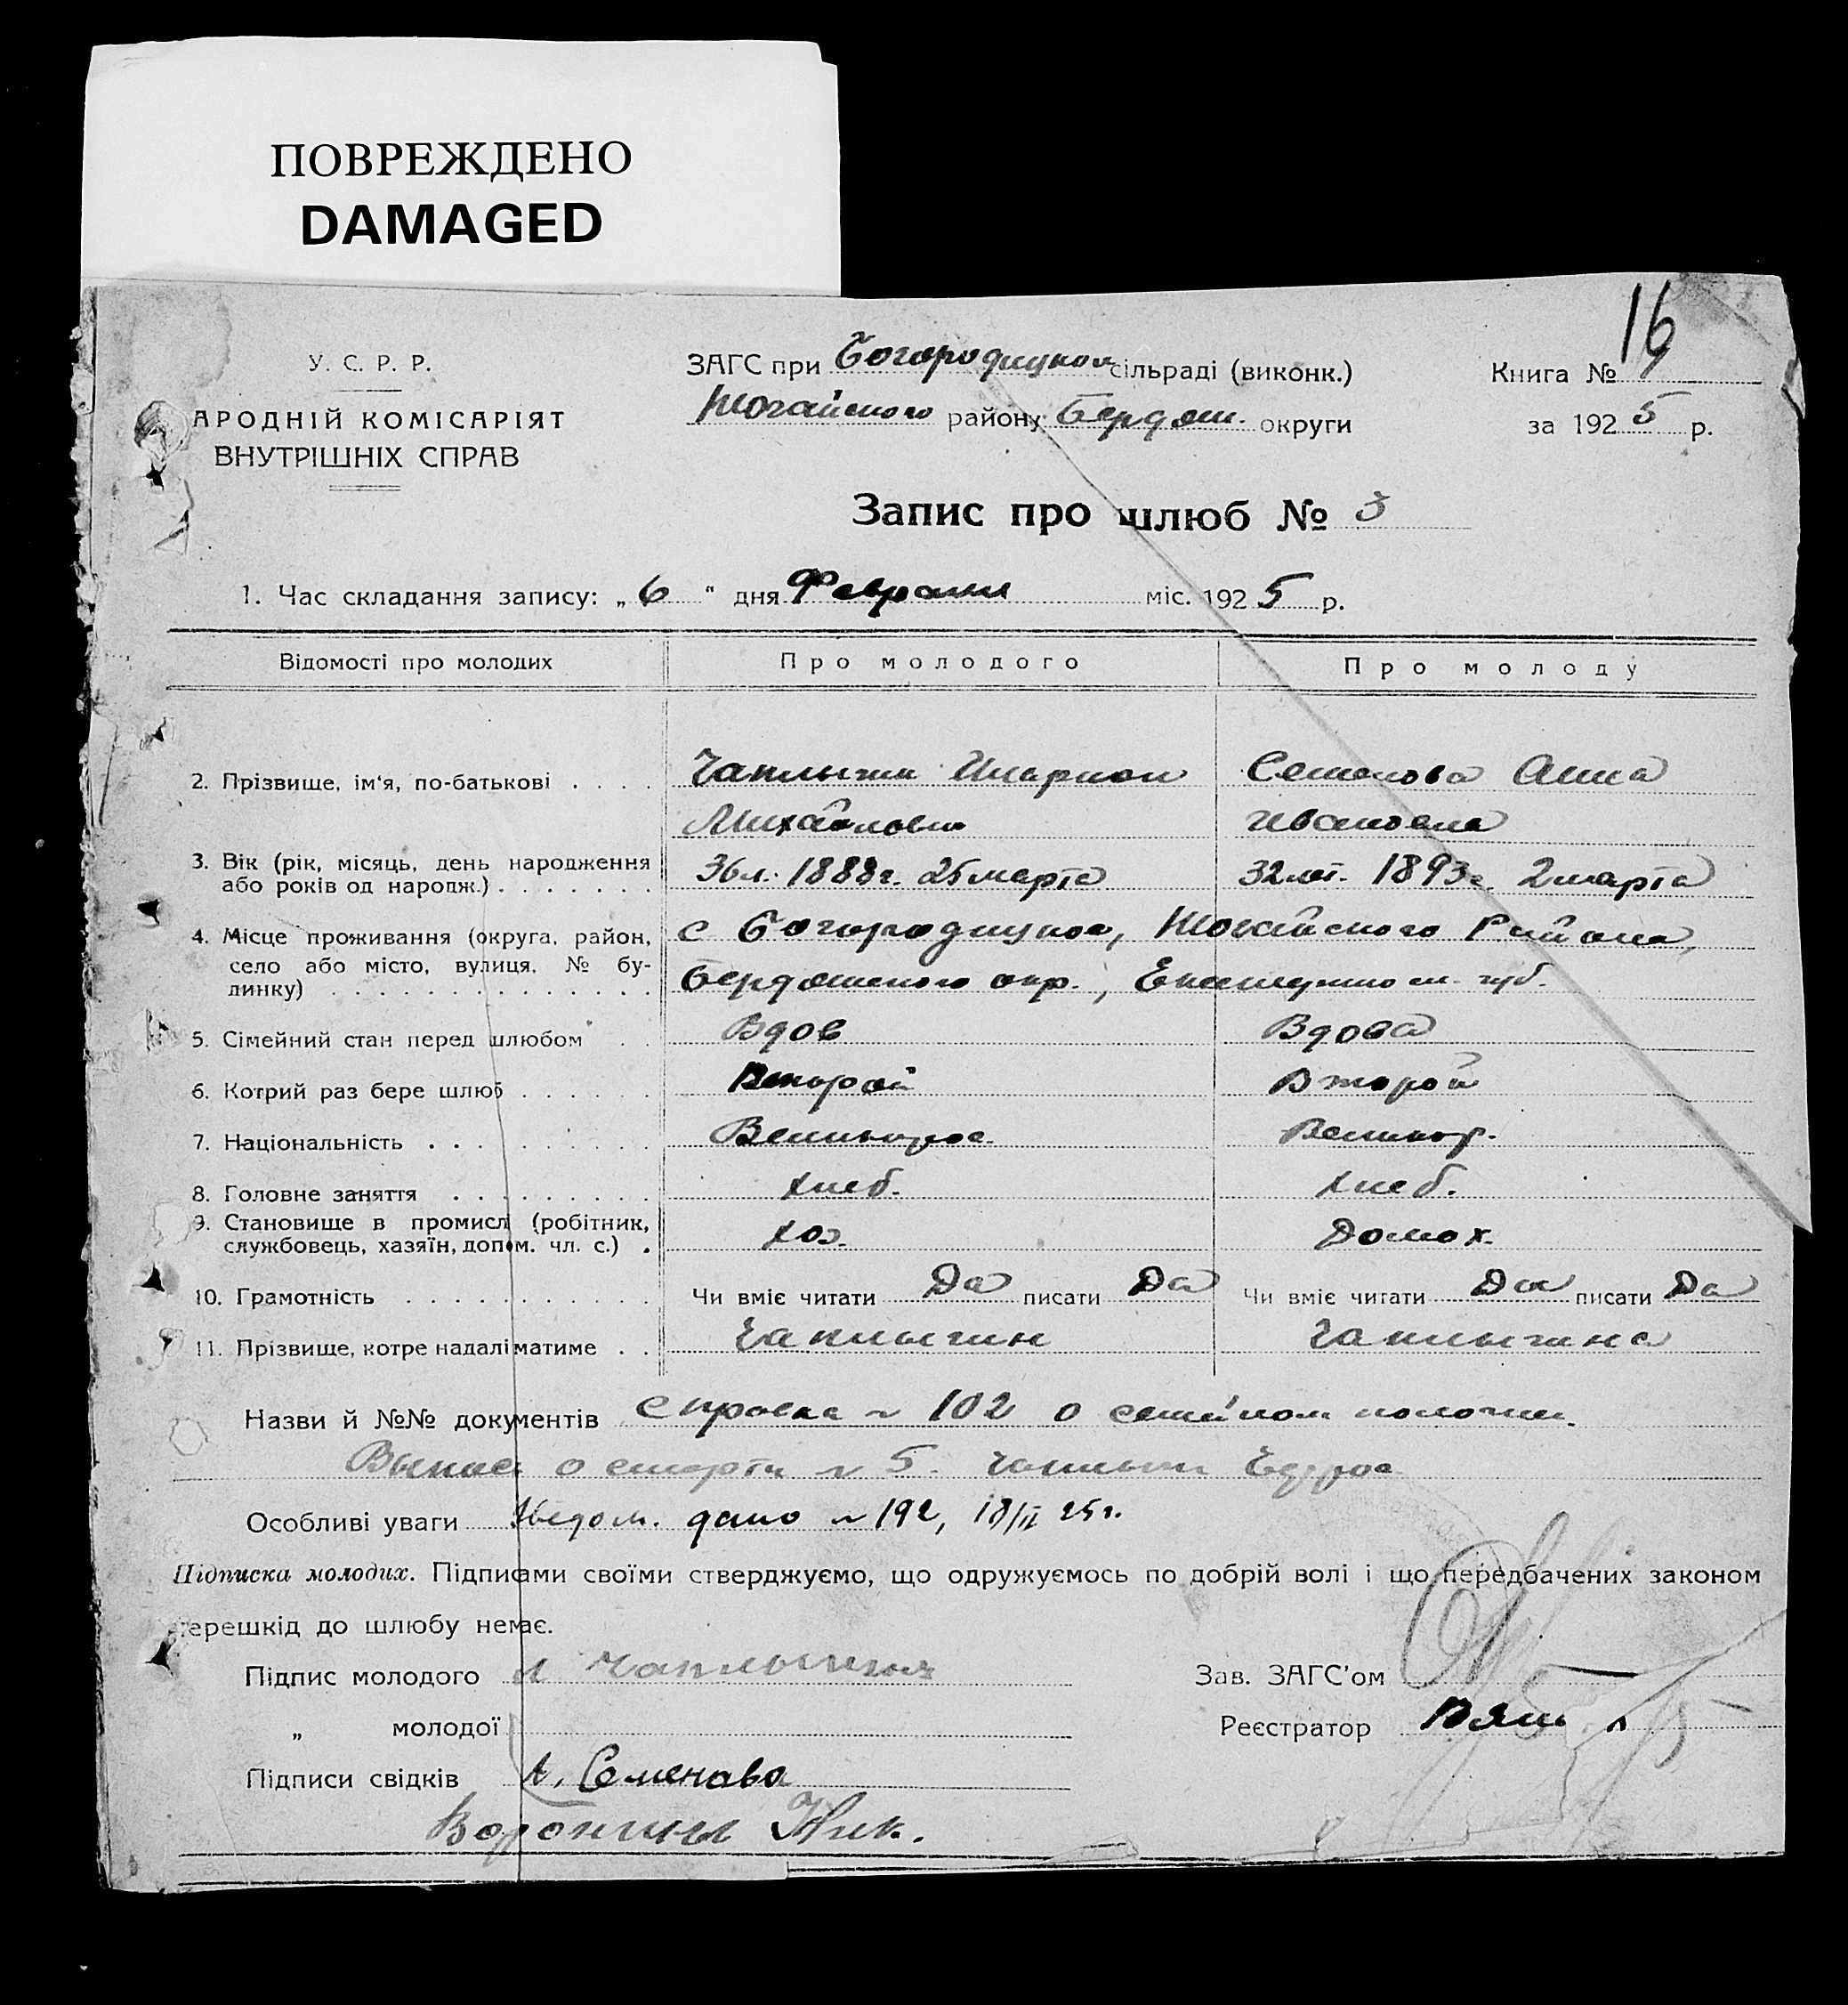 ПОВРЕЖДЕНО
DAMAGED
16
У. С. Р. Р.
АРОДНІЙ КОМІСАРІЯТ
ВНУТРІШНІХ СПРАВ
ЗАГС при Богородицком сільраді (виконк.)
району Бердян. округи
Книга №
за 1925 р.
Запис про шлюб № 3
1. Час складання запису: „6" дня Февраля міс. 1925 р.
Відомості про молодих Про молодого Про молоду
2. Прізвище, ім'я, по-батькові . . . . Чаплыгин Иларион Семенова Анна
Михайлович Ивановна
3. Вік (рік, місяць, день народження 36 л. 1888 г. 25 марта 32 лет. 1893 г. 2 марта
або років од народж.) . . . . . . .
4. Місце проживання (округа, район, с Богородицкое, Района,
село або місто, вулиця, № бу-
динку) . . . . . . . . . . . . . . Бердянского окр., губ.
5. Сімейний стан перед шлюбом . . Вдов Вдова
6. Котрий раз бере шлюб . . . . . . Второй Второй
7. Національність . . . . . . . . . Великорос. Великор.
8. Головне заняття . . . . . . . . . Хлеб. Хлеб.
9. Становище в промислі (робітник,
службовець, хазяїн, допом. чл. с.) . Хоз. Домох.
10. Грамотність . . . . . . . . . . . Чи вміє читати Да писати Да Чи вміє читати Да писати Да
11. Прізвище, котре надалі матиме . . Чаплыгин Чаплыгина
Назви й №№ документів Справка № 102 о семейном положен.
Выпись о смерти № 5. Чаплыгин
Особливі уваги Уведом. дано № 192, 18/II 25 г.
Підписка молодих. Підписами своїми стверджуємо, що одружуємось по добрій волі і що передбачених законом
перешкід до шлюбу немає.
Підпис молодого Чаплыгин
Зав. ЗАГС'ом
„ молодої
Реєстратор
Підписи свідків А. Семенова
Воронины Ник.